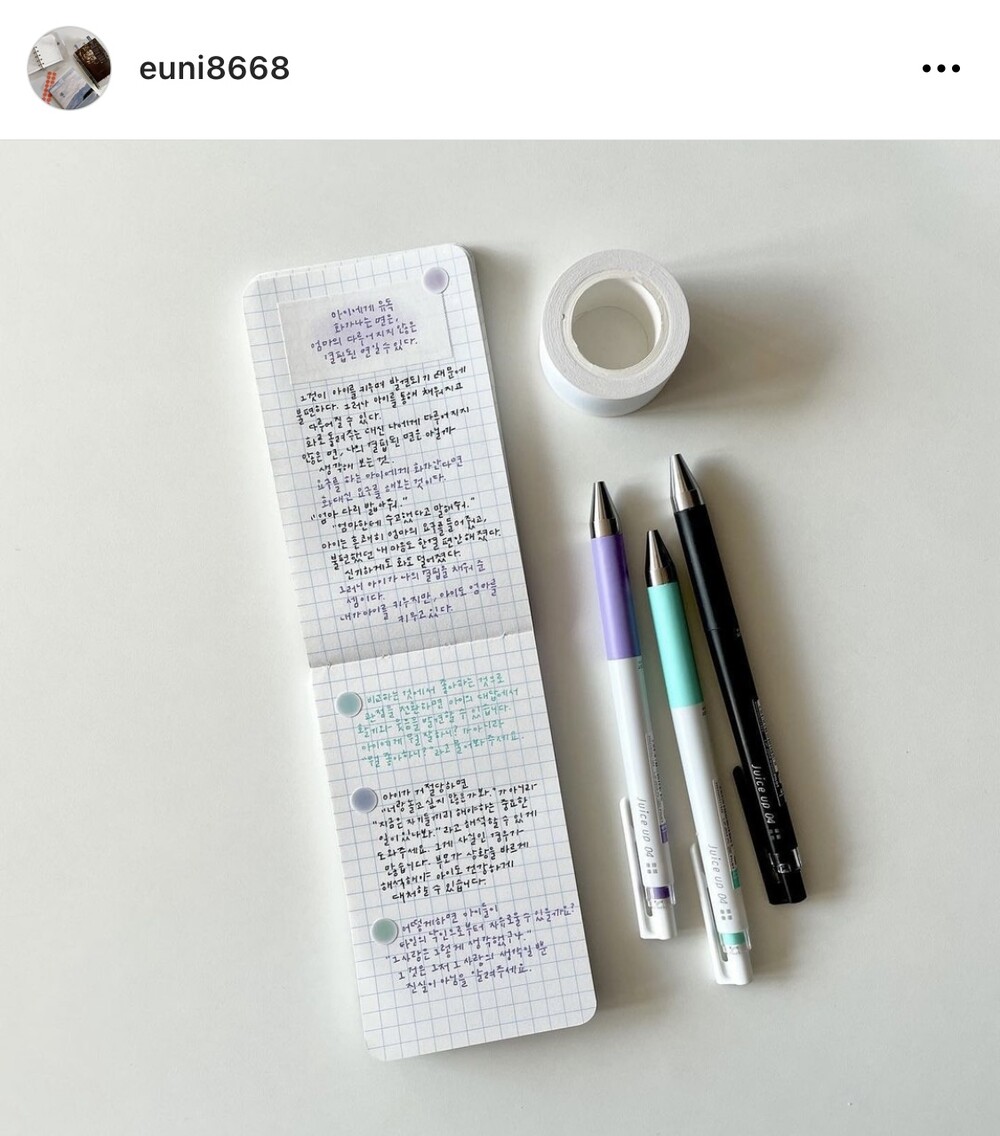 euni8668
아이에게 유독
화가나는 면은,
엄마의 다루어지지 않은
결핍된 면일 수 있다.
그것이 아이를 키우며 발견되기 때문에
불편하다. 그러나 아이를 통해 채워지고
다루어질 수 있다.
화로 돌려주는 대신 나에게 다루어지지
않은 면, 나의 결핍된 면은 아닐까
생각해 보는 것.
요구를 하는 아이에게 화가 난다면
화 대신 요구를 해보는 것이다.
"엄마 다리 밟아줘."
"엄마한테 수고했다고 말해줘."
아이는 흔쾌히 엄마의 요구를 들어줬고,
불편했던 내 마음도 한결 편안해졌다.
신기하게도 화도 덜어졌다.
그러니 아이가 나의 결핍을 채워 준
셈이다.
내가 아이를 키우지만, 아이도 엄마를
키우고 있다.
비교하는 것에서 좋아하는 것으로
관점을 전환하면 아이의 대답에서
활기와 웃음을 발견할 수 있습니다.
아이에게 "뭘 잘하니?"가 아니라
"뭘 좋아하니?"라고 물어봐 주세요.
아이가 거절당하면
"너랑 놀고 싶지 않은가 봐."가 아니라
"지금은 자기들끼리 해야하는 중요한
일이 있나봐."라고 해석할 수 있게
도와주세요. 그게 사실인 경우가
많습니다. 부모가 상황을 바르게
해석해야 아이도 건강하게
대처할 수 있습니다.
어떻게하면 아이들이
타인의 낙인으로부터 자유로울 수 있을까요?
"그 사람은 그렇게 생각했구나."
그것은 그저 그 사람의 생각일 뿐
진실이 아님을 알려주세요.
juice up 04
juice up 04
juice up 04